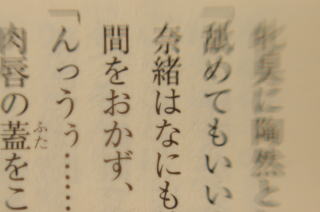 牝臭に陶然と
「舐めてもいい
奈緒はなにも
間をおかず、
「んっうぅ……
肉唇の蓋をこ
ふた